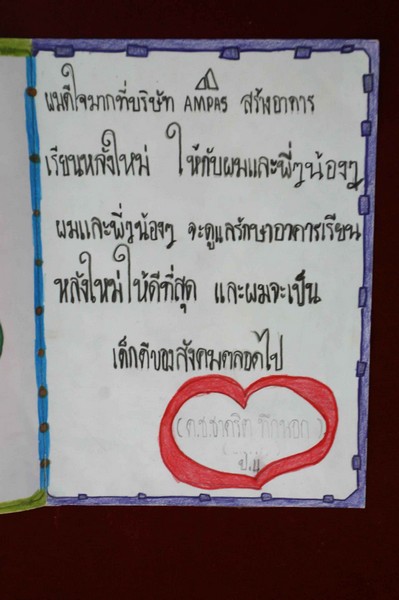 ผมดีใจมากที่บริษัท AMPAS สร้างอาคาร
เรียนหลังใหม่ ให้กับผมและพี่ๆน้องๆ
ผมและพี่ๆน้องๆ จะดูแลรักษาอาคารเรียน
หลังใหม่ให้ดีที่สุด และผมจะเป็น
เด็กดีของสังคมตลอดไป
(ด.ช.ชาคริต